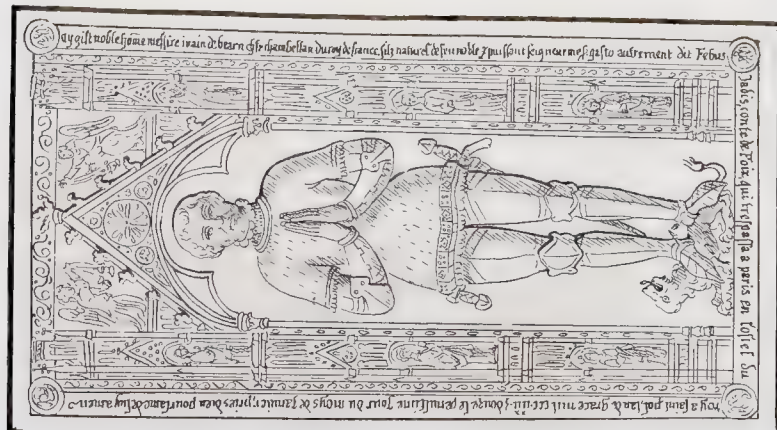 Cy gist noble hõme messire ivain de bearn chlr chambellan du roy de france, filz naturel de feu noble z puissant seigneur mesr gasto autrement dit Febus
Jadis, conte de Foix, qui trespassa a paris en lostel du
roy a saint pol, lan de grace mil ccc iiii z douze le penultime jour du moys de janvier, pries dieu pour lame de luy amen